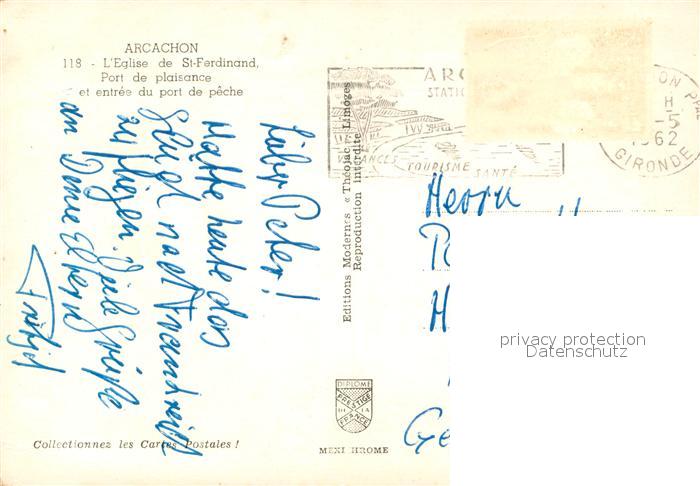 ARCACHON
118 - L'Eglise de St-Ferdinand,
Port de plaisance
et entrée du port de pêche
Lieber Peter!
Hatte heute das
Glück nach Frankreich
zu fliegen. Viele Grüße
an Deine Eltern
Editions Modernes « Théojac », Limoges
Reproduction Interdite
ARC
STATIO
VACANCES
TOURISME
SANTÉ
ON PPAL
H
-5
1962
GIRONDE
Herrn
H
Ge
privacy protection
Datenschutz
DIPLOME
PRESTIGE
DE LA
FRANCE
Collectionnez les Cartes Postales !
MEXI HROME